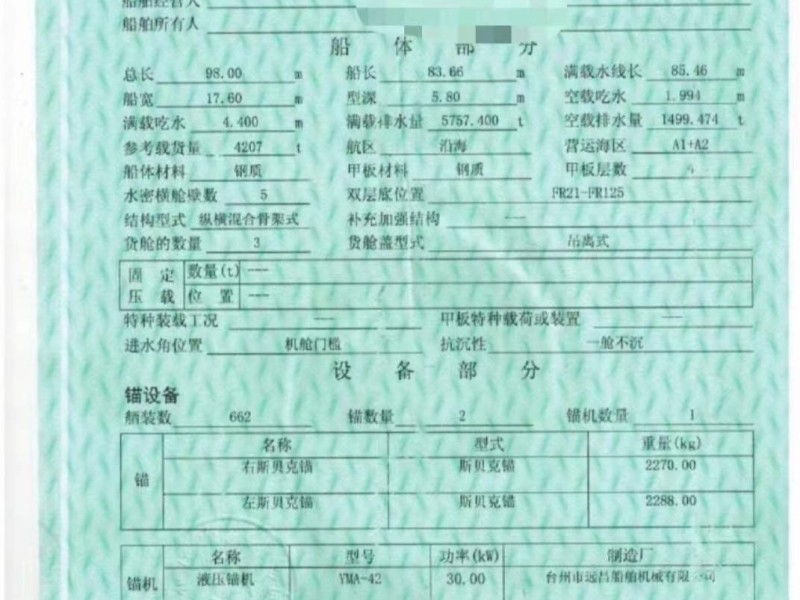 船舶经营人
船舶所有人
船 体 部 分
总长 98.00 m 船长 83.66 m 满载水线长 85.46 m
船宽 17.60 m 型深 5.80 m 空载吃水 1.994 m
满载吃水 4.400 m 满载排水量 5757.400 t 空载排水量 1499.474 t
参考载货量 4207 t 航区 沿海 营运海区 A1+A2
船体材料 钢质 甲板材料 钢质 甲板层数
水密横舱壁数 5 双层底位置 FR21-FR125
结构型式 纵横混合骨架式 补充加强结构 ---
货舱的数量 3 货舱盖型式 吊离式
固 定 数量(t) ---
压 载 位 置 ---
特种装载工况 --- 甲板特种载荷或装置 ---
进水角位置 机舱门槛 抗沉性 一舱不沉
设 备 部 分
锚设备
舾装数 662 锚数量 2 锚机数量 1
名称 型式 重量(kg)
锚 右斯贝克锚 斯贝克锚 2270.00
左斯贝克锚 斯贝克锚 2288.00
名称 型号 功率(kW) 制造厂
锚机 液压锚机 YMA-42 30.00 台州市远昌船舶机械有限公司